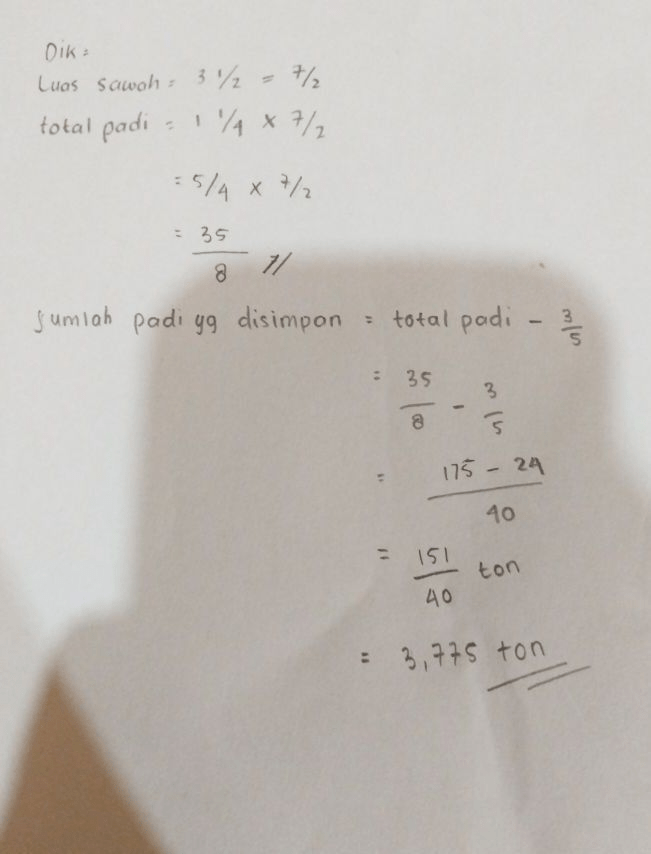 Dik :
Luas sawah = 3 1/2 = 7/2
total padi = 1 1/4 x 7/2
= 5/4 x 7/2
= 35/8 //
Jumlah padi yg disimpan = total padi - 3/5
= 35/8 - 3/5
= 175 - 24/40
= 151/40 ton
= 3,775 ton